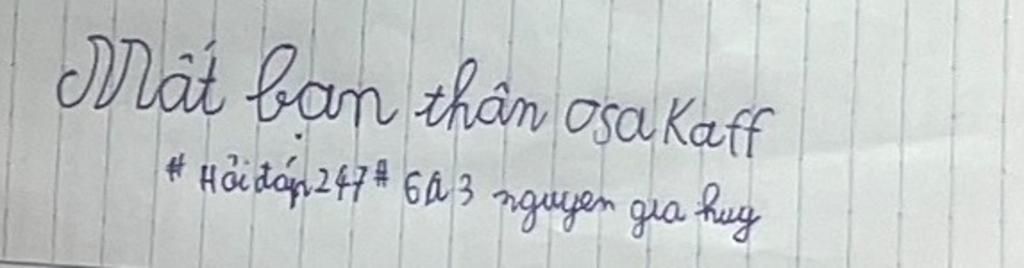 Mất bạn thân osakaff
# Hỏi đáp 247 # 6a3 nguyen gia huy